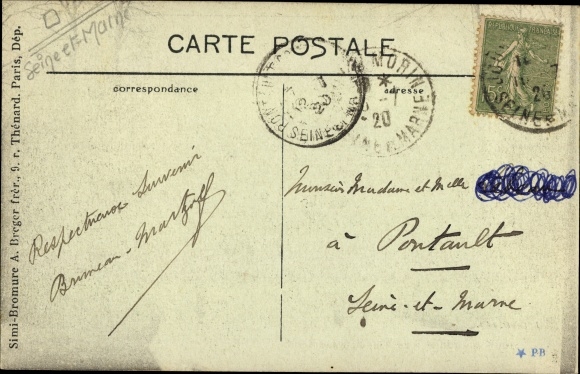 Seine et-Marne
CARTE POSTALE
correspondance
adresse
Respectueux Souvenir
Bruneau-Martzoff
Monsieur Madame et Melle
à Pontault
Seine-et-Marne
Simi-Bromure A. Breger frèr., 9. r. Thénard. Paris, Dép.
MORIN
20
SEINE
PB